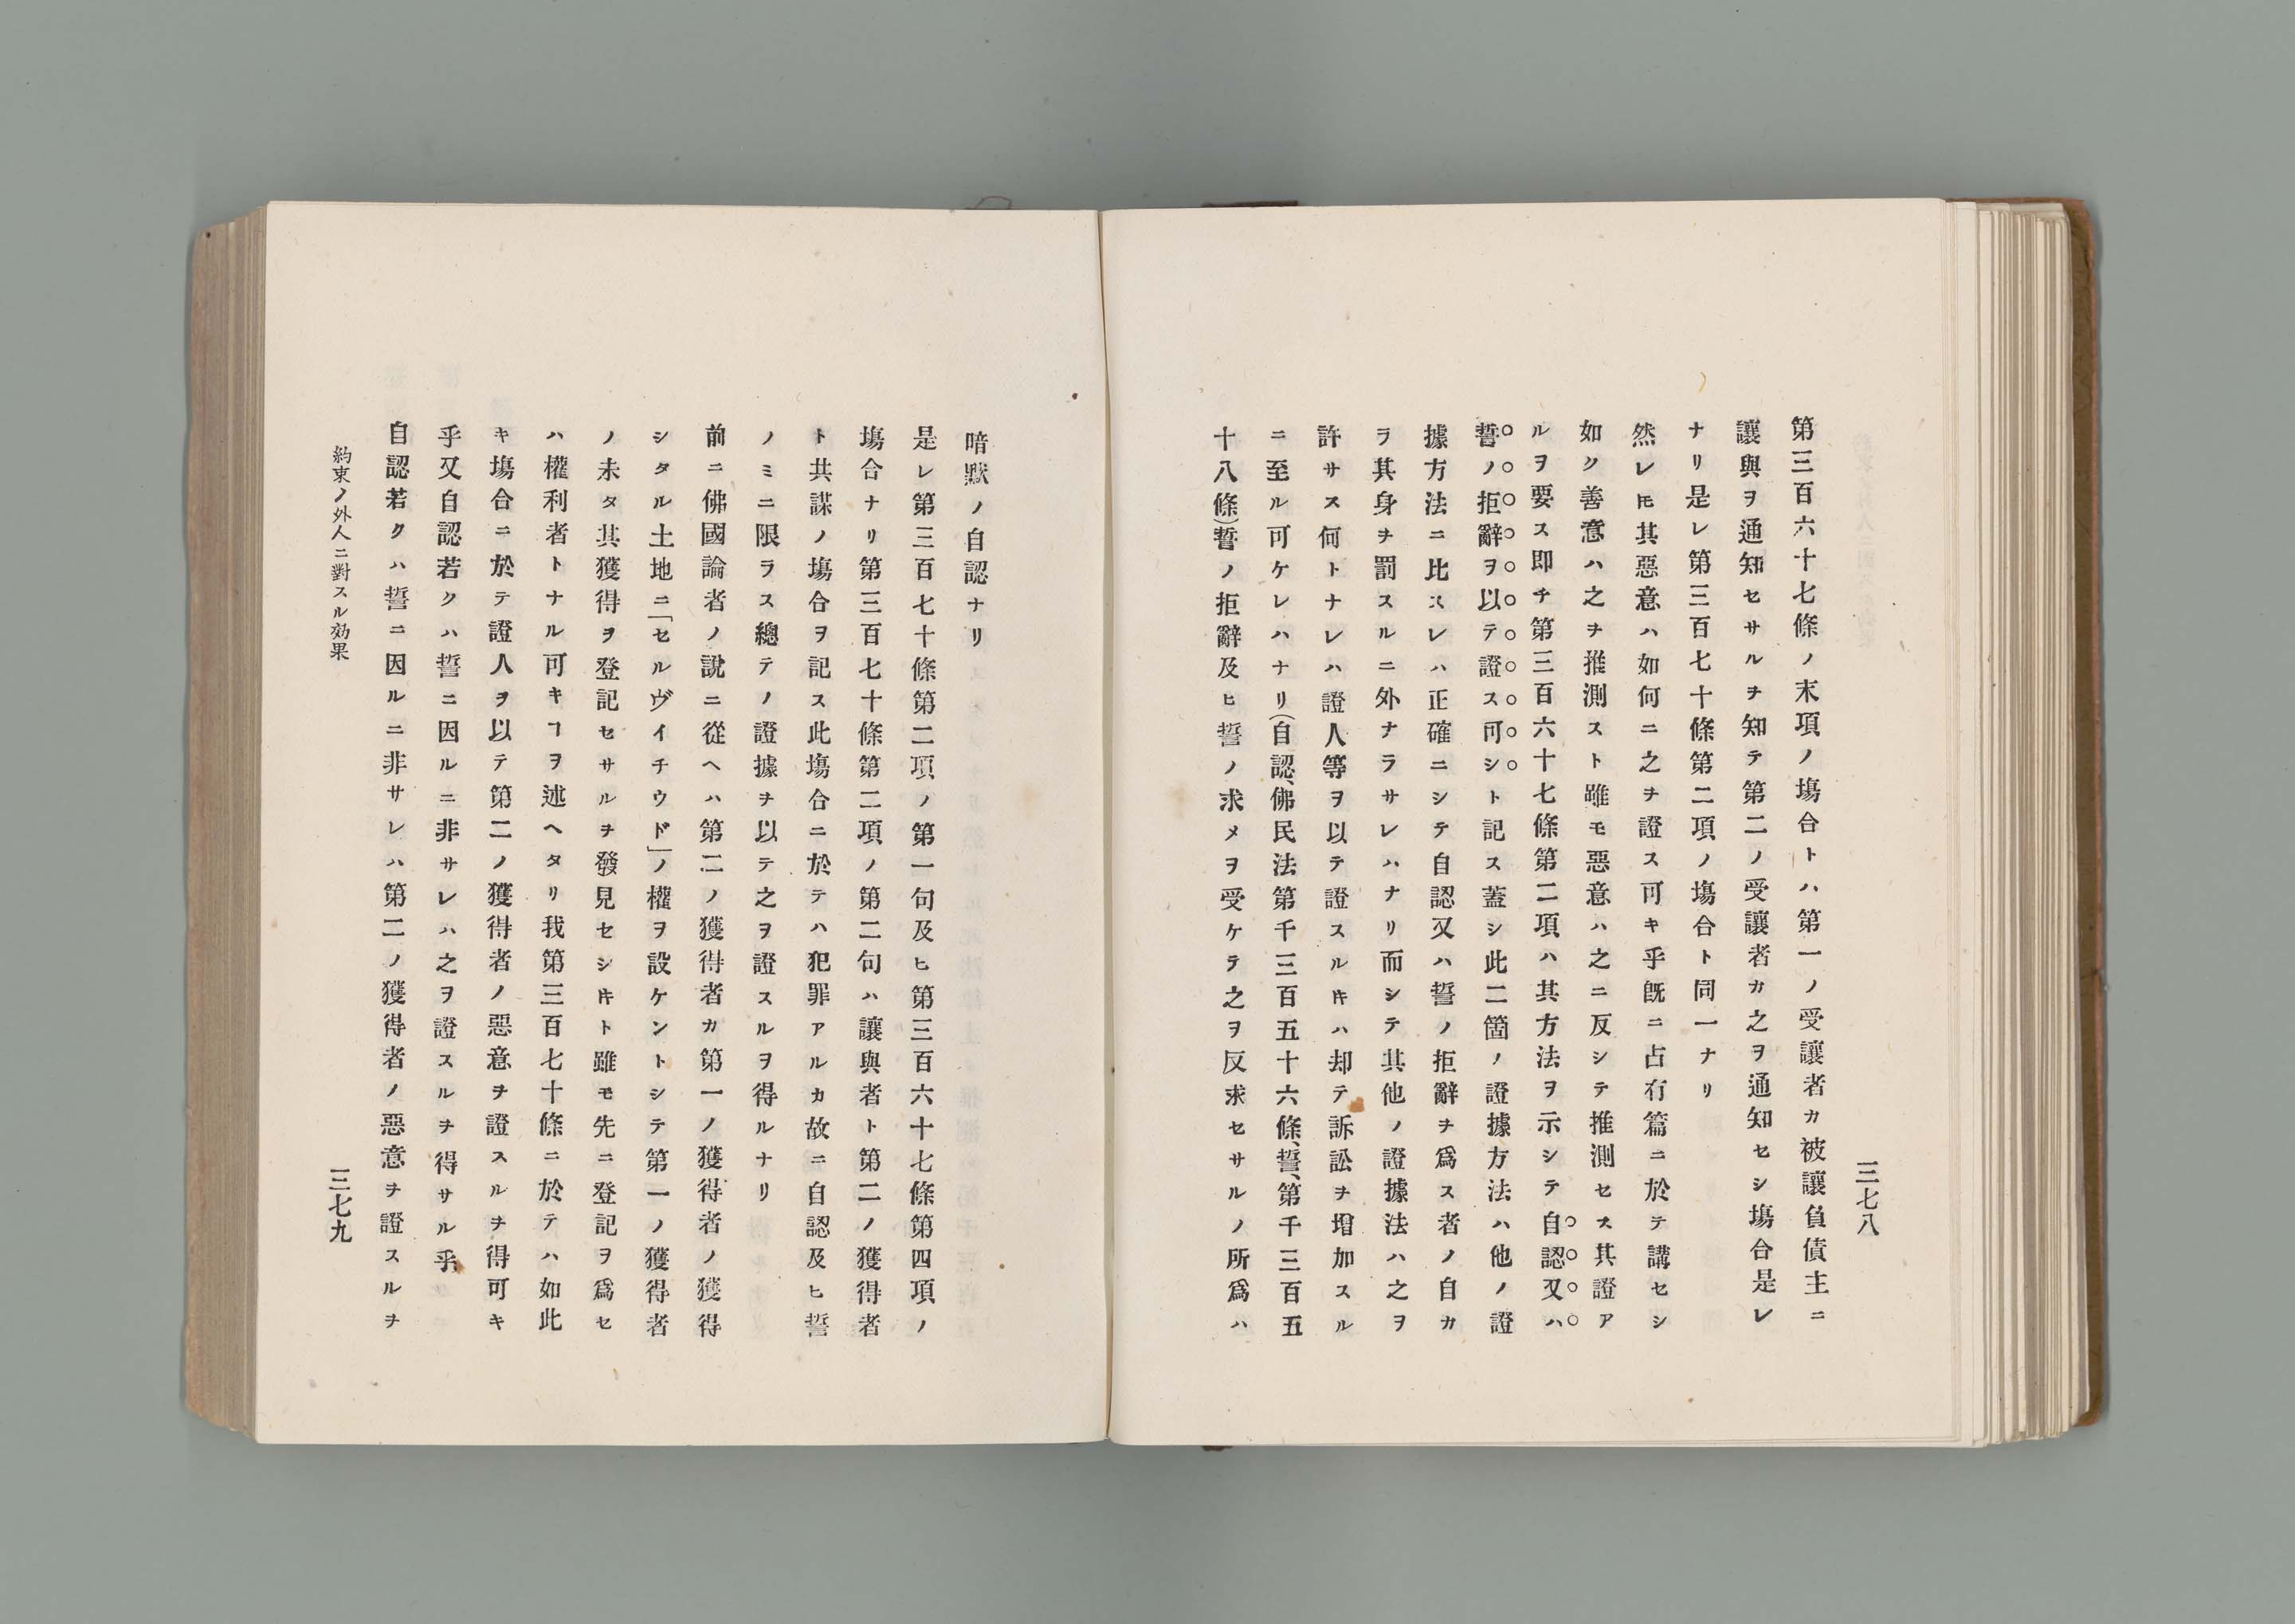 三七八
第三百六十七條ノ末項ノ塲合トハ第一ノ受讓者カ被讓負債主ニ
讓與ヲ通知セサルヲ知テ第二ノ受讓者カ之ヲ通知セシ塲合是レ
ナリ是レ第三百七十條第二項ノ塲合ト同一ナリ
然レ𪜈其惡意ハ如何ニ之ヲ證ス可キ乎既ニ占有篇ニ於テ講セシ
如ク善意ハ之ヲ推測スト雖モ惡意ハ之ニ反シテ推測セス其證ア
ルヲ要ス即チ第三百六十七條第二項ハ其方法ヲ示シテ自認又ハ
誓ノ拒辭ヲ以テ證ス可シト記ス蓋シ此二箇ノ證據方法ハ他ノ證
據方法ニ比スレハ正確ニシテ自認又ハ誓ノ拒辭ヲ爲ス者ノ自カ
ラ其身ヲ罰スルニ外ナラサレハナリ而シテ其他ノ證據法ハ之ヲ
許サス何トナレハ證人等ヲ以テ證スル𪜈ハ却テ訴訟ヲ増加スル
ニ至ル可ケレハナリ(自認、佛民法第千三百五十六條、誓、第千三百五
十八條)誓ノ拒辭及ヒ誓ノ求メヲ受ケテ之ヲ反求セサルノ所爲ハ
暗默ノ自認ナリ
是レ第三百七十條第二項ノ第一句及ヒ第三百六十七條第四項ノ
塲合ナリ第三百七十條第二項ノ第二句ハ讓與者ト第二ノ獲得者
ト共謀ノ塲合ヲ記ス此塲合ニ於テハ犯罪アルカ故ニ自認及ヒ誓
ノミニ限ラス總テノ證據ヲ以テ之ヲ證スルヲ得ルナリ
前ニ佛國論者ノ說ニ從ヘハ第二ノ獲得者カ第一ノ獲得者ノ獲得
シタル土地ニ「セルヴイチウド」ノ權ヲ設ケントシテ第一ノ獲得者
ノ未タ其獲得ヲ登記セサルヲ發見セシ𪜈ト雖モ先ニ登記ヲ爲セ
ハ權利者トナル可キヿヲ述ヘタリ我第三百七十條ニ於テハ如此
キ塲合ニ於テ證人ヲ以テ第二ノ獲得者ノ惡意ヲ證スルヲ得可キ
乎又自認若クハ誓ニ因ルニ非サレハ之ヲ證スルヲ得サル乎
自認若クハ誓ニ因ルニ非サレハ第二ノ獲得者ノ惡意ヲ證スルヲ
約束ノ外人ニ對スル効果
三七九